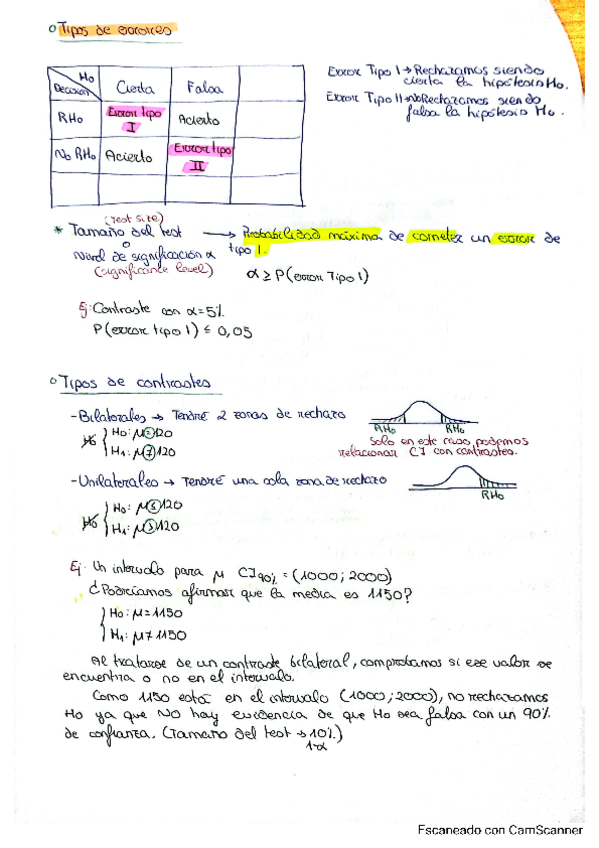 Tipos de errores
H0 Cierta Falsa
Decisión
RH0 Error tipo I Acierto
No RH0 Acierto Error tipo II
Error Tipo I → Rechazamos siendo
cierta la hipótesis H0.
Error Tipo II → No Rechazamos siendo
falsa la hipótesis H0.
(test size)
* Tamaño del test → Probabilidad máxima de cometer un error de
o tipo 1.
Nivel de significación α
(significante level) α ≥ P(error Tipo 1)
Ej: Contraste con α=5%
P(error tipo 1) ≤ 0,05
Tipos de contrastes
- Bilaterales → Tendré 2 zonas de rechazo
RH0 RH0
H0: μ=120
H1: μ≠120
Solo en este caso podemos
relacionar CI con contrastes.
- Unilaterales → Tendré una sola zona de rechazo
RH0
H0: μ≤120
H1: μ>120
Ej: Un intervalo para μ CI90% = (1000; 2000)
¿Podríamos afirmar que la media es 1150?
H0: μ=1150
H1: μ≠1150
Al tratarse de un contraste bilateral, comprobamos si ese valor se
encuentra o no en el intervalo.
Como 1150 está en el intervalo (1000; 2000), no rechazamos
H0 ya que NO hay evidencia de que H0 sea falsa con un 90%
de confianza. (Tamaño del test → 10%)
1-α
Escaneado con CamScanner